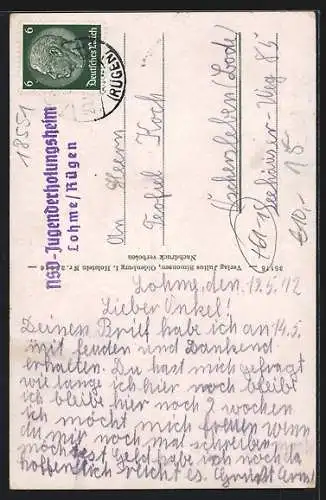 6 6
Deutsches Reich
(RÜGEN)
18551
NSD-Jugenderholungsheim
Lohme/Rügen
An Herrn
Teofiel Koch
Aschersleben (Lode)
Seehäuser-Weg 85
15
€10,-
Verlag Julius Simonsen, Oldenburg i. Holstein Nr.
Nachdruck verboten
Lohme, den 12.5.42
Lieber Onkel!
Deinen Brief habe ich am 14.5
mit feuden und Dankend
erhalten. Du hast mich gefragt
wie lange ich hier noch bleibe
ich bleibe hier noch 2 wochen
ich möcht mich freuen wenn
du mir noch mal schreiben
möchtest Geld habe ich noch da
hoffenlich reicht es